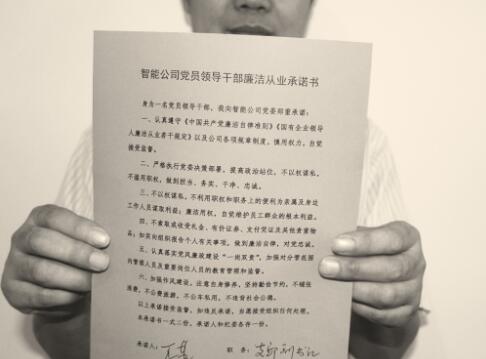 智能公司党员领导干部廉洁从业承诺书
身为一名党员领导干部，我向智能公司党委郑重承诺：
一、认真遵守《中国共产党廉洁自律准则》《国有企业领导
人廉洁从业若干规定》以及公司各项规章制度，慎用权力，自觉
接受监督。
二、严格执行党委决策部署，提高政治站位，不以权谋私，
不滥用职权，做到担当、务实、干净、忠诚。
三、不以权谋私，不利用职权和职务上的便利为亲属及身边
工作人员谋取利益；廉洁用权，自觉维护员工群众的根本利益。
四、不索取或收受礼金、有价证券、支付凭证及其他贵重物
品；如实向组织报告个人有关事项，做到廉洁自律，对党忠诚。
五、认真落实党风廉政建设“一岗双责”，加强对分管范围
内管理人员及重要岗位人员的教育管理和监督。
六、加强作风建设，注意自身修养，坚持勤俭节约，不铺张
浪费，不公费旅游，不公车私用，不违背社会公德。
以上承诺接受监督，如违反承诺，自愿接受组织任何处理。
本承诺书一式二份，承诺人和纪委各存一份。
承诺人：
职 务：支部副书记